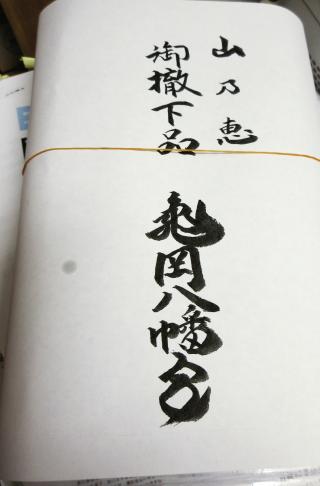 山乃恵
御撤下品
亀岡八幡宮